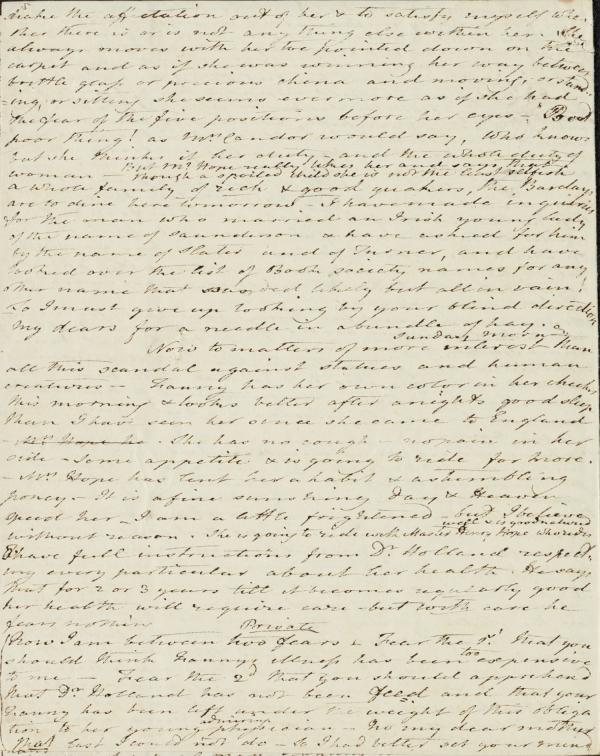 make the affectation out of her & to satisfy myself whe
ther there is or is not any thing else within her. She
always moves with her toe pointed down on the
carpet and as if she was winning her way between
brittle glass or precious china and moving, or stand
-ing, or sitting she seems evermore as if she had
the fear of the five positions before her eyes - Poor
poor thing! as Mrs Candor would say, who knows
but she thinks it her duty and the whole duty of
woman - But Mr Hope really likes her and says that
though a spoiled child she is not the least selfish
a whole family of rich & good quakers, the Barclays
are to dine here tomorrow - I have made inquiries
for the man who married an Irish young lady
of the name of Saunderson & have asked for him
by the name of Slater and of Turner, and have
looked over the list of Book society names for any
other name that sounded likely but all in vain!
So I must give up looking by your blind direction
my dears for a needle in a bundle of hay.
Sunday morng
Now to matters of more interest than
all this scandal against statues and human
creatures - Fanny has her own color in her cheeks
this morning & looks better after a night's good sleep
than I have seen her since she came to England
- Mrs Hope he - She has no cough - no pain in her
side - some appetite & is going to ride for more.
- Mrs Hope has lent her a habit & a stumbling
poney - It is a fine sunshiny day & Heaven
speed her - I am a little frightened - but I believe
without reason. She is going to ride with Master Henry Hope who rides
well & is good natured
I have full instructions from Dr Holland respect
ing every particular about her health. He says
that for 2 or 3 years till it becomes regularly good
her health will require care - but with care he
fears nothing
Private
Now I am between two fears - Fear the 1st that you
should think Fanny's illness has been too expensive
to me - Fear the 2d that you should apprehend
that Dr Holland has not been feed and that your
Fanny has been left under the weight of this obliga
tion to her young admiring physician - No my dear mother
that last I could not do - So I had better set your mind